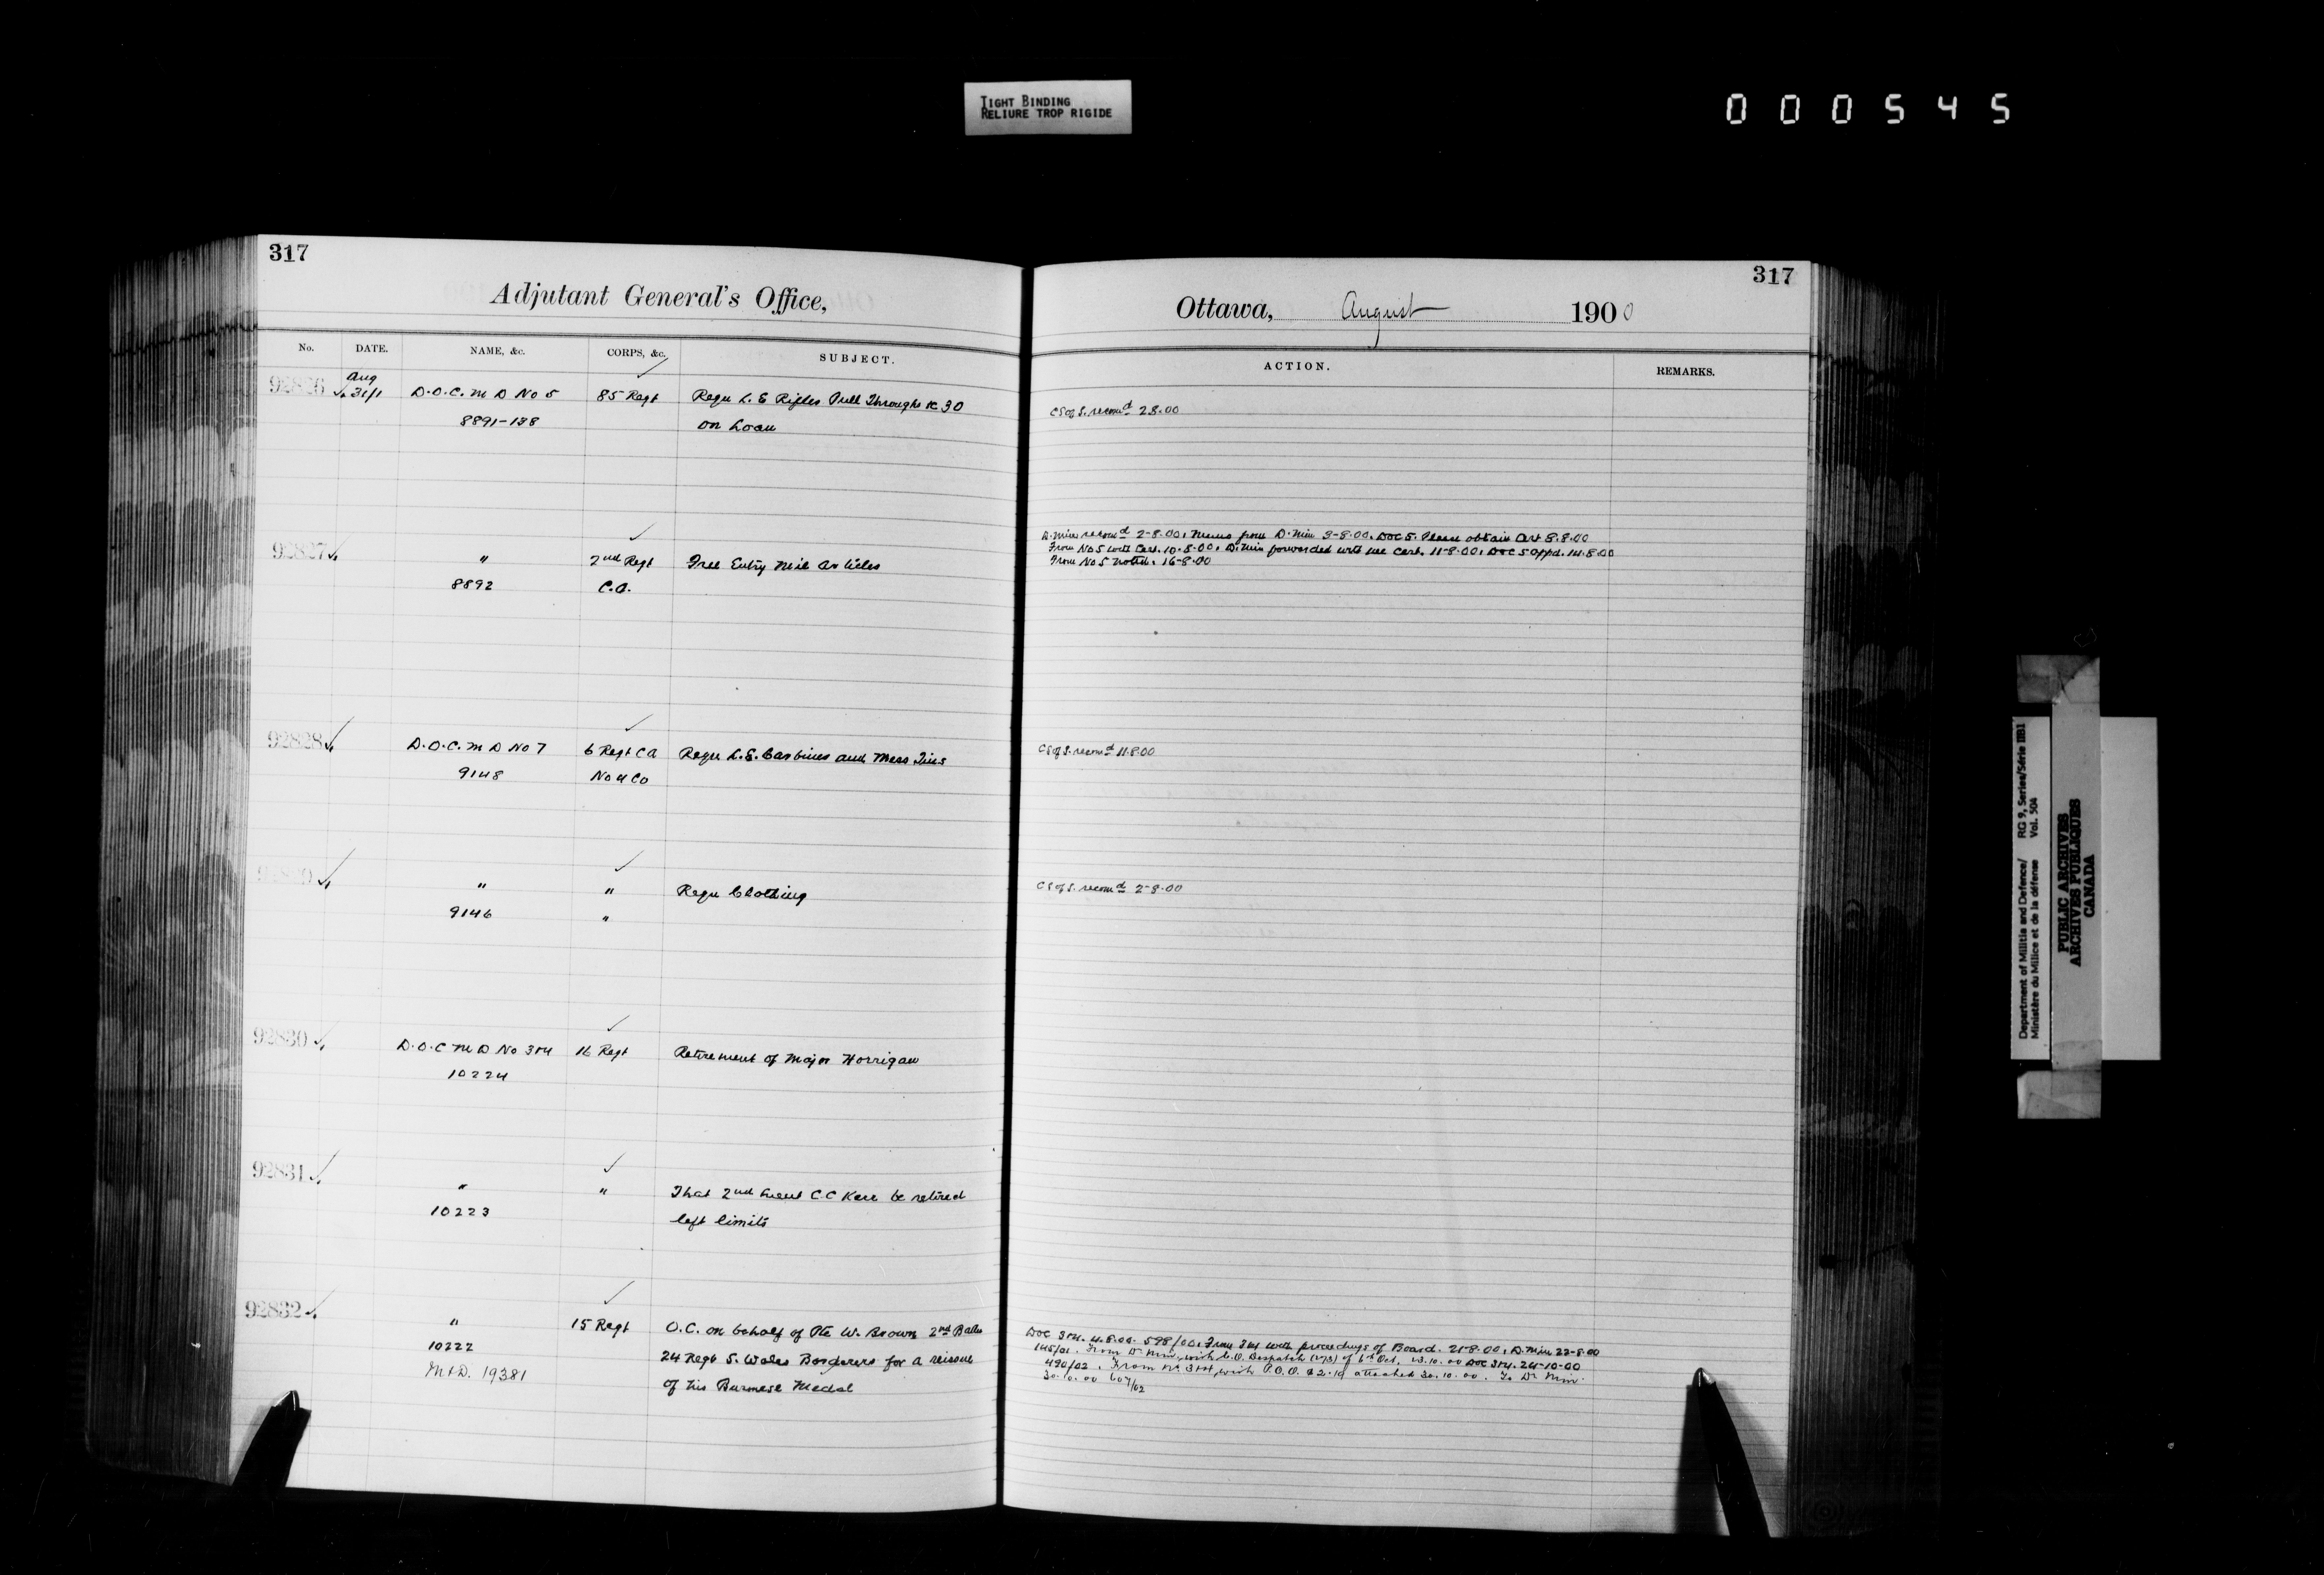 TIGHT BINDING
RELIURE TROP RIGIDE
000545
317
Adjutant General's Office,
317
Ottawa, August 1900
No. DATE. NAME, &c. CORPS, &c. SUBJECT.
ACTION. REMARKS.
92826 Aug 31/1 D.O.C. M D No 5 85 Regt Requ L. E Rifles Pull Throughs &c 30
8891-138 on Loan
C S of S. recomd 2.8.00
92827 " 2nd Regt Free Entry Mil articles
8892 C.A.
D. Min recomd 2-8.00. Memo from D. Min 3-8.00. DOC 5. Please obtain Cert 8.8.00
From No 5 with Cert. 10.8.00. D. Min forwarded with Cert. 11-8.00. DOC 5 appd. 14.8.00
From No 5 noted. 16-8.00
92828 D.O.C. M D No 7 6 Regt C A Requ L. E. Carbines and Mess Tins
9148 No 4 Co
C S of S. recomd 11.8.00
" " Requ Clothing
9146 "
C S of S. recomd 2-8.00
92830 D.O.C M D No 3&4 16 Regt Retirement of Major Horrigan
10224
92831 " " That 2nd Lieut C.C Kerr be retired
10223 left limits
92832 " 15 Regt O.C. on behalf of Pte W. Brown 2nd Batln
10222 24 Regt S. Wales Borderers for a reissue
M&D. 19381 of his Burmese Medal
DOC 3&4. 4.8.00. 598/00. From 3&4 with proceedings of Board. 21-8.00. D. Min 22-8.00
145/01. From D. Min, with C.O. Despatch of 6th Oct. 23.10.00 DOC 3&4. 24-10-00
490/02. From No. 3&4, with P.O.O. $2.10 attached 30.10.00. To Dr Min
30.10.00 607/02
Department of Militia and Defence/ RG 9, Series/Série IIB1
Ministère du Milice et de la défense Vol. 504
PUBLIC ARCHIVES
ARCHIVES PUBLIQUES
CANADA